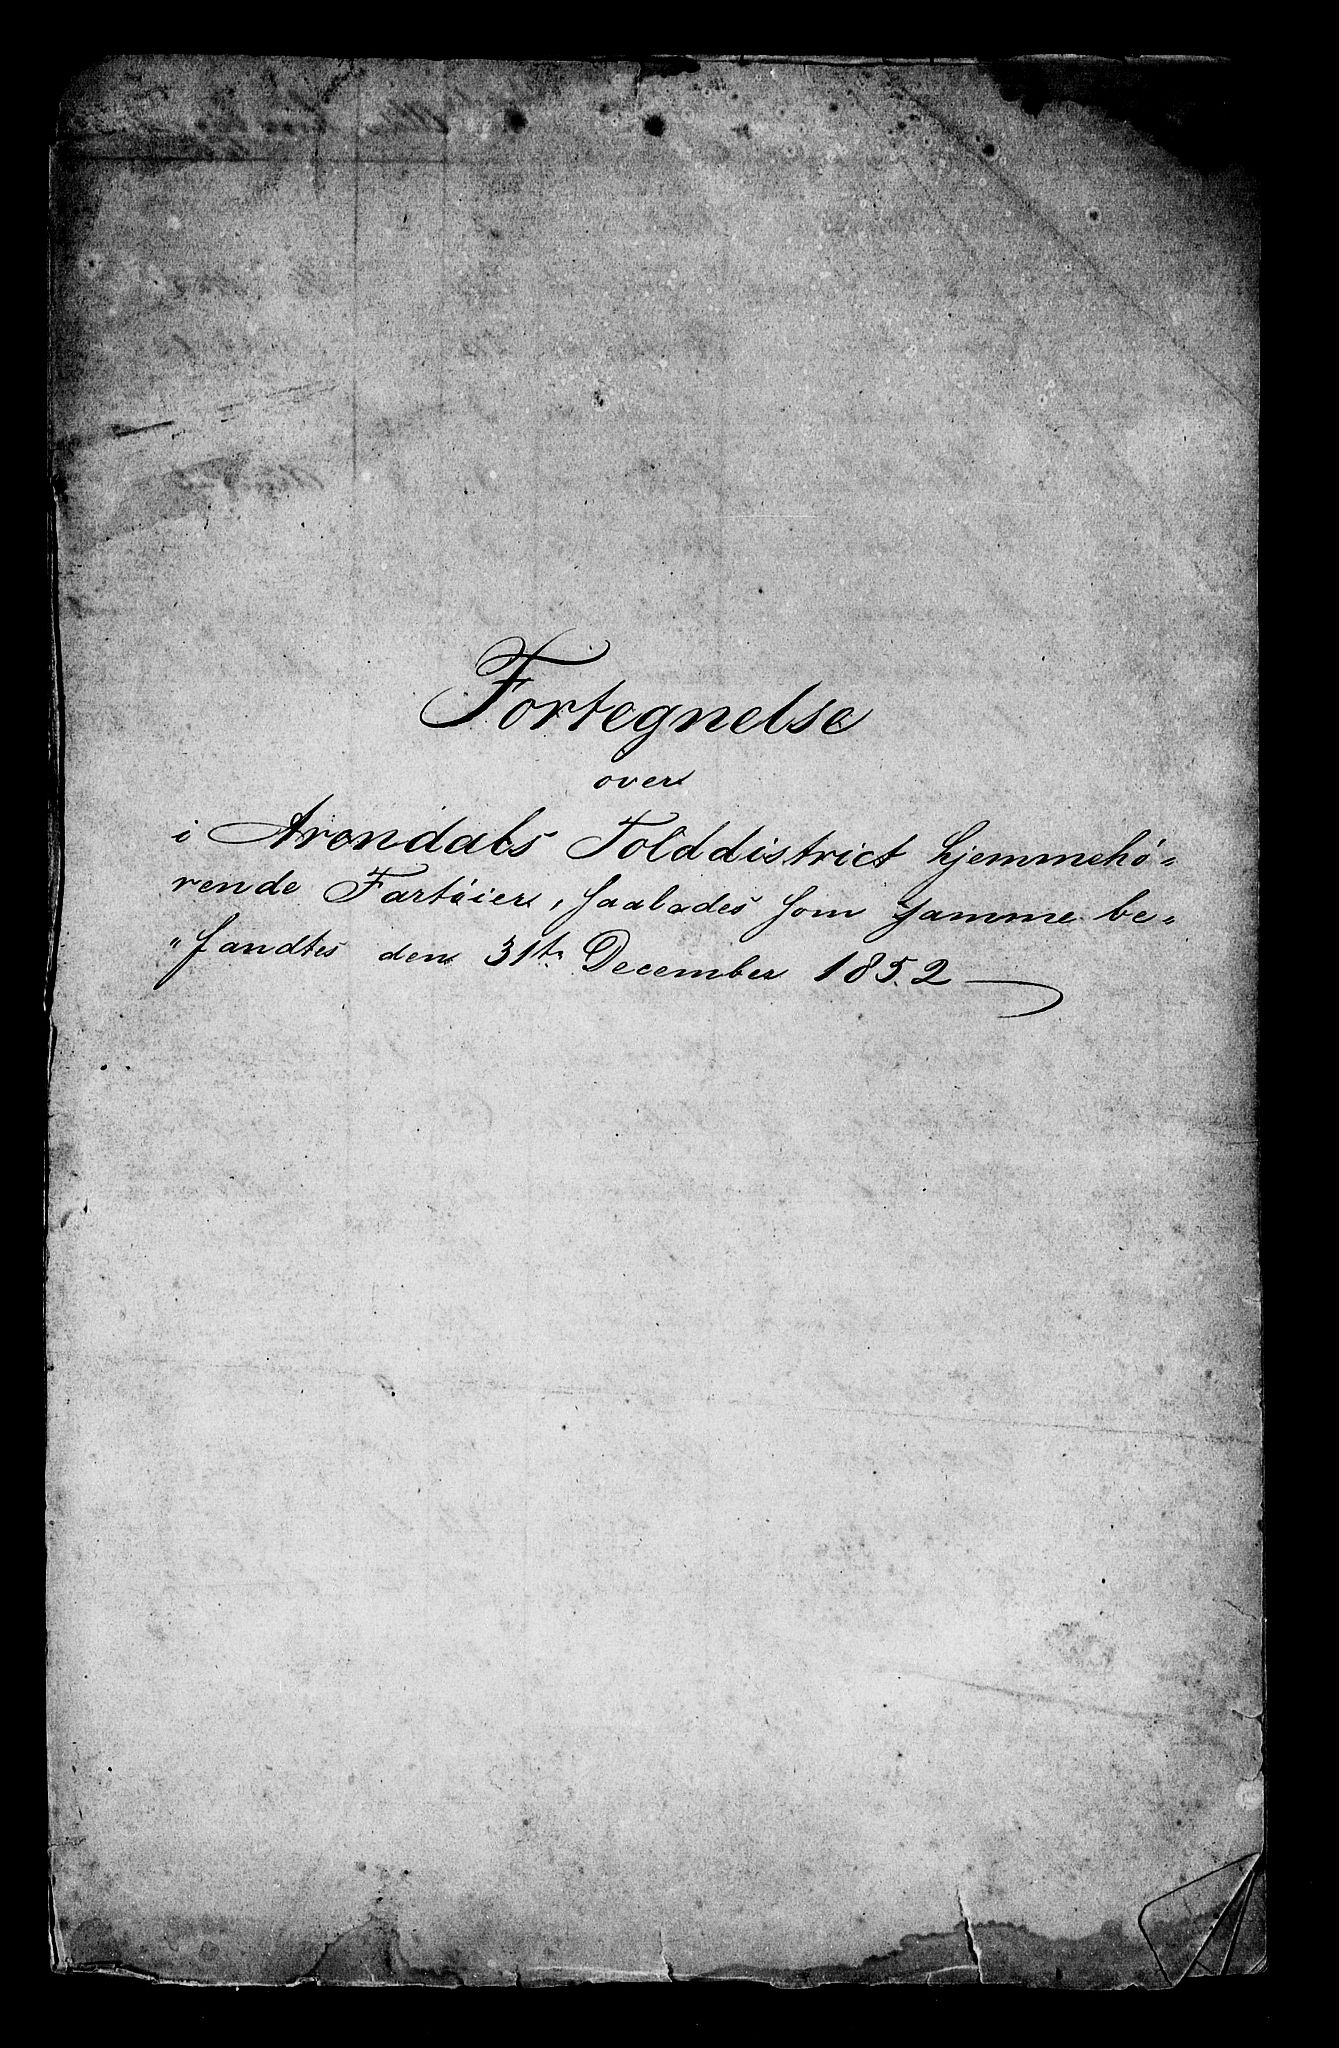 Fortegnelse
over
i Arendals Tolddistrict hjemmehø-
rende Fartøier, saaledes som samme be-
"fandtes den 31te December 1852